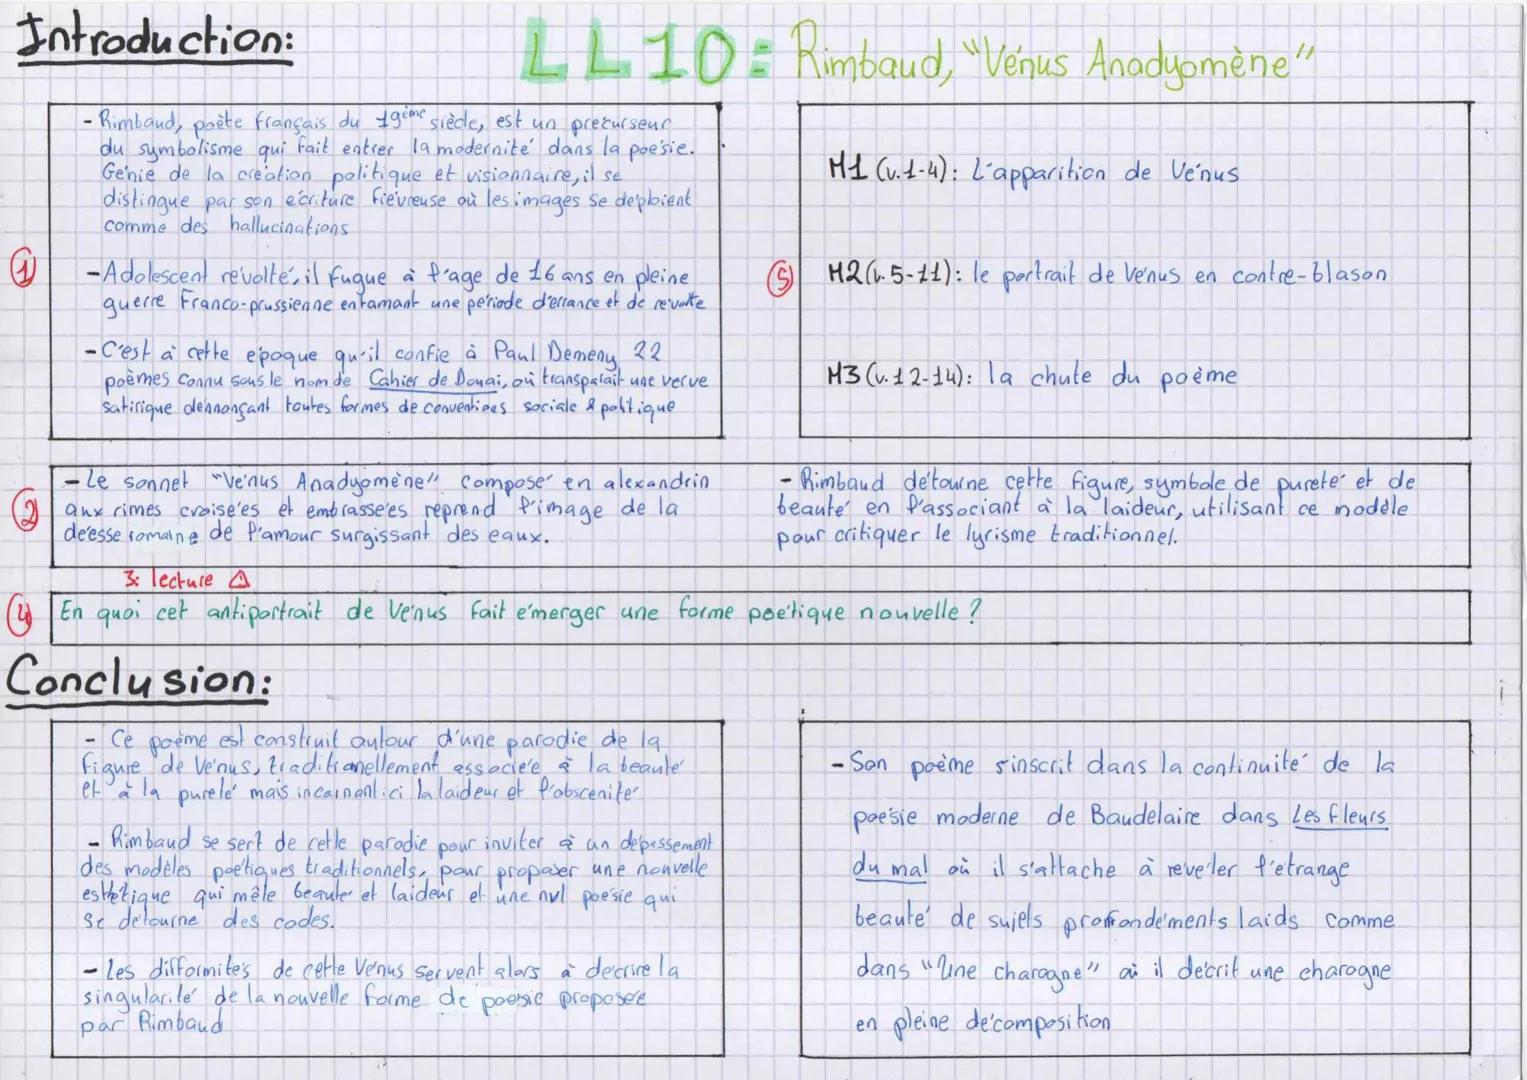 Introduction:
LL10: Rimbaud, "Vénus Anadyomène"
- Rimbaud, poète français du 19ème siècle, est un precurseur
du symbolisme qui fait entrer la modernité dans la poésie.
Génie de la création politique et visionnaire, il se
distingue par son écriture fiévreuse où les images se déploient
comme des hallucinations
1
- Adolescent révolté, il fugue à l'age de 16 ans en pleine
guerre Franco-prussienne entamant une période d'errance et de révolte
- C'est à cette époque qu'il confie à Paul Demeny 22
poèmes connu sous le nom de Cahier de Douai, où transparait une verve
satirique dennonçant toutes formes de conventions sociale & politique
5
M1 (v.1-4): L'apparition de Vénus
M2 (v.5-11): le portrait de Vénus en contre-blason
M3 (v.12-14): la chute du poème
2
- Le sonnet "Vénus Anadyomène" composé en alexandrin
aux rimes croisées et embrassées reprend l'image de la
déesse romaine de l'amour surgissant des eaux.
- Rimbaud détourne cette figure, symbole de pureté et de
beauté en l'associant à la laideur, utilisant ce modèle
pour critiquer le lyrisme traditionnel.
3: lecture ⚠
4
En quoi cet antiportrait de Vénus fait émerger une forme poétique nouvelle ?
Conclusion:
- Ce poème est construit autour d'une parodie de la
figure de Vénus, traditionellement associée à la beauté
et à la pureté mais incarnant ici la laideur et l'obscénité
- Rimbaud se sert de cette parodie pour inviter à un dépassement
des modèles poétiques traditionnels, pour proposer une nouvelle
esthétique qui mêle beauté et laideur et une nvl poésie qui
se détourne des codes.
- Les difformités de cette Vénus servent alors à décrire la
singularité de la nouvelle forme de poésie proposée
par Rimbaud
- Son poème s'inscrit dans la continuité de la
poésie moderne de Baudelaire dans Les fleurs
du mal où il s'attache à révéler l'étrange
beauté de sujets profondéments laids comme
dans "Une charogne" où il décrit une charogne
en pleine décomposition